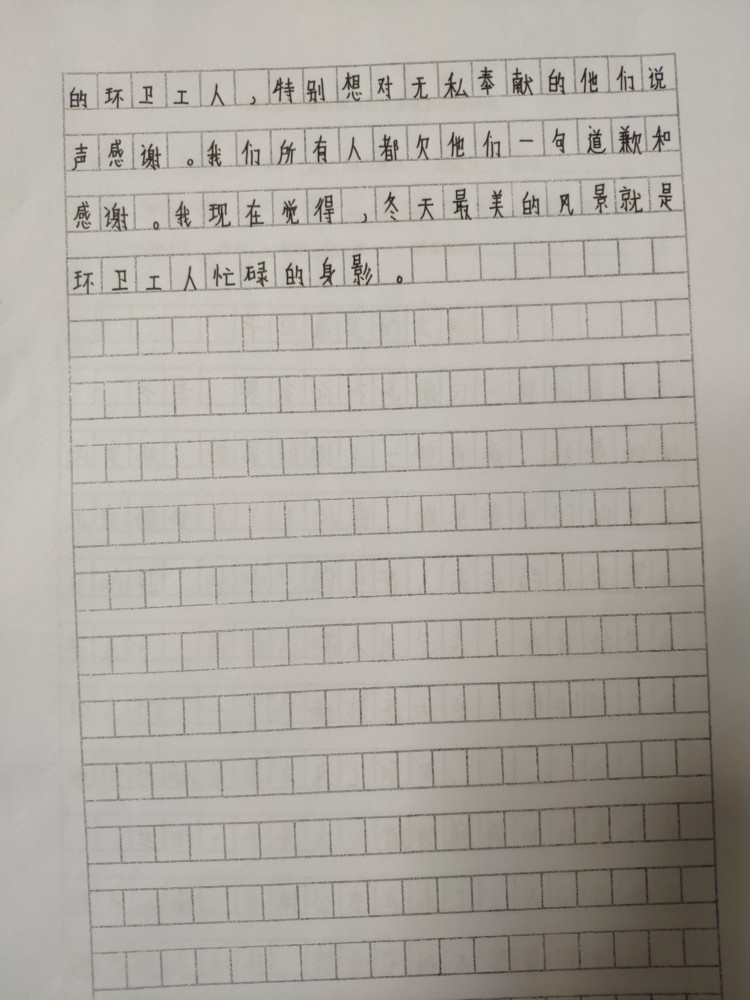 的环卫工人,特别想对无私奉献的他们说
声感谢。我们所有人都欠他们一句道歉和
感谢。我现在觉得,冬天最美的风景就是
环卫工人忙碌的身影。